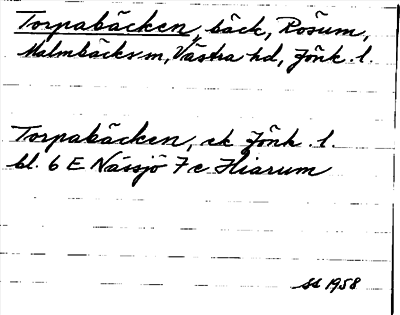 Torpabäcken, bäck, Rösum,
Malmbäcks sn, Västra hd, Jönk. l.
Torpabäcken, ek Jönk. l.
bl. 6 E Nässjö 7 c Hiarum
1958